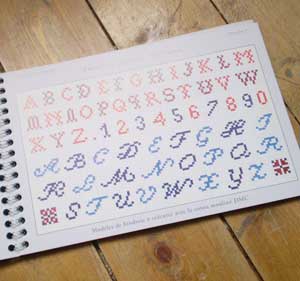 A B C D E F G H I J K L M
N O P Q R S T U V W
X Y Z . 1 2 3 4 5 6 7 8 9 0
A B C D E F G H
S T U V W X Y Z
Modèles de broderie à exécuter avec le coton mouliné DMC